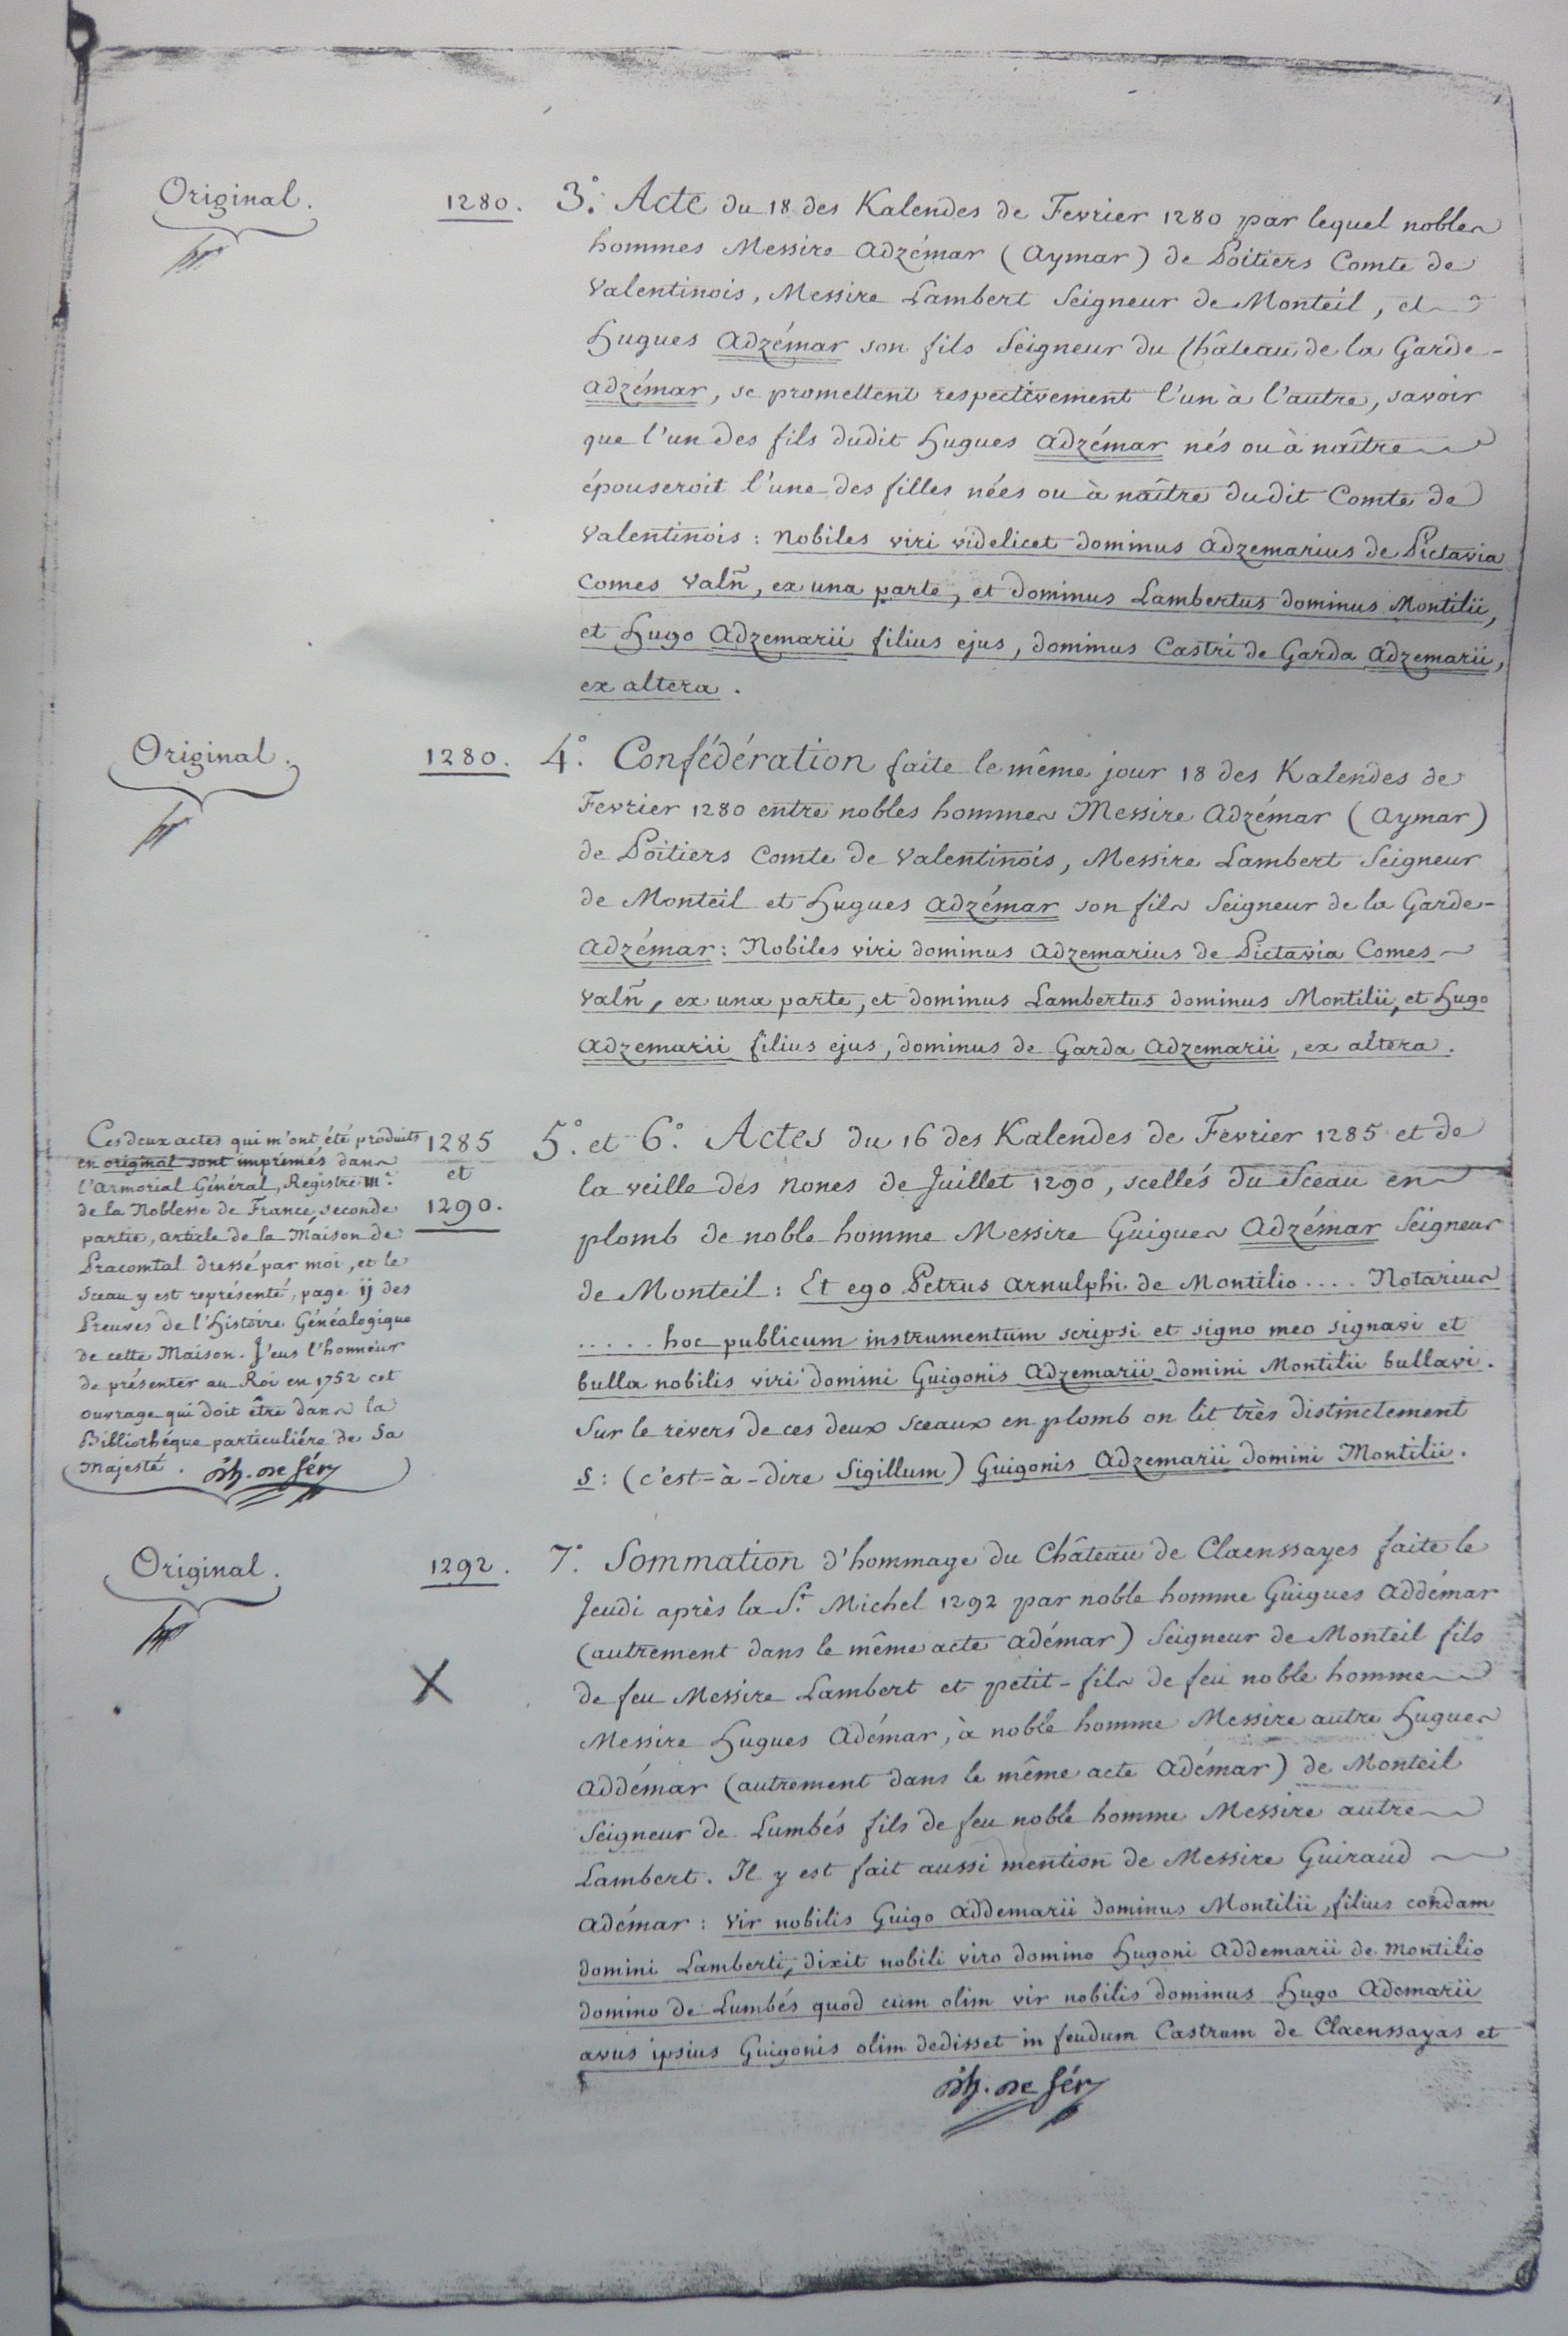 Original.
1280.
3°. Acte du 18 des Kalendes de Fevrier 1280 par lequel nobles
hommes Messire Adzémar (Aymar) de Poitiers Comte de
Valentinois, Messire Lambert Seigneur de Monteil, et
Hugues Adzémar son fils Seigneur du Château de la Garde-
Adzémar, se promettent respectivement l'un à l'autre, savoir
que l'un des fils dudit Hugues Adzémar nés ou à naître
épouseroit l'une des filles nées ou à naître dudit Comte de
Valentinois : Nobiles viri videlicet dominus Adzemarius de Pictavia
Comes Valñ, ex una parte, et dominus Lambertus dominus Montilii,
et Hugo Adzemarii filius ejus, dominus Castri de Garda Adzemarii,
ex altera.
Original.
1280.
4°. Confédération faite le même jour 18 des Kalendes de
Fevrier 1280 entre nobles hommes Messire Adzémar (Aymar)
de Poitiers Comte de Valentinois, Messire Lambert Seigneur
de Monteil et Hugues Adzémar son fils Seigneur de la Garde-
Adzémar : Nobiles viri dominus Adzemarius de Pictavia Comes
Valñ, ex una parte, et dominus Lambertus dominus Montilii, et Hugo
Adzemarii filius ejus, dominus de Garda Adzemarii, ex altera.
Ces deux actes qui m'ont été produits
en original sont imprimés dans
l'Armorial Général, Registre III.e
de la Noblesse de France, seconde
partie, article de la Maison de
Pracomtal dressé par moi, et le
Sceau y est représenté, page ij des
Preuves de l'Histoire Généalogique
de cette Maison. J'eus l'honneur
de présenter au Roi en 1752 cet
ouvrage qui doit être dans la
Bibliothéque particuliére de Sa
Majesté.
1285
et
1290.
5°. et 6°. Actes du 16 des Kalendes de Fevrier 1285 et de
la veille des Nones de Juillet 1290, scellés du Sceau en
plomb de noble homme Messire Guigues Adzémar Seigneur
de Monteil : Et ego Petrus Arnulphi de Montilio .... Notarius
..... hoc publicum instrumentum scripsi et signo meo signavi et
bulla nobilis viri domini Guigonis Adzemarii domini Montilii bullavi.
Sur le revers de ces deux Sceaux en plomb on lit très distinctement
S : (c'est-à-dire Sigillum) Guigonis Adzemarii domini Montilii.
Original.
1292.
X
7°. Sommation d'hommage du Château de Claenssayes faite le
Jeudi après la S.t Michel 1292 par noble homme Guigues Addémar
(autrement dans le même acte Adémar) Seigneur de Monteil fils
de feu Messire Lambert et petit-fils de feu noble homme
Messire Hugues Adémar, à noble homme Messire autre Hugues
Addémar (autrement dans le même acte Adémar) de Monteil
Seigneur de Lumbés fils de feu noble homme Messire autre
Lambert. Il y est fait aussi mention de Messire Guiraud
Adémar : Vir nobilis Guigo Addemarii dominus Montilii, filius condam
domini Lamberti, dixit nobili viro domino Hugoni Addemarii de Montilio
domino de Lumbés quod cum olim vir nobilis dominus Hugo Ademarii
avus ipsius Guigonis olim dedisset in feudum Castrum de Claenssayas et